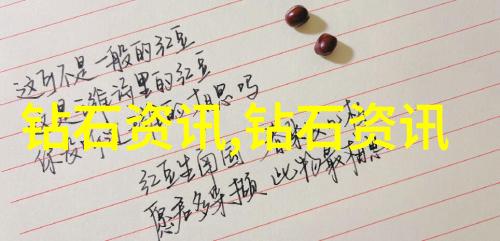 这可不是一般的红豆
是王维诗里的红豆
的相思吗
钻石资讯,钻石资讯
红豆生南国 春来发几枝
愿君多采撷 此物最相思